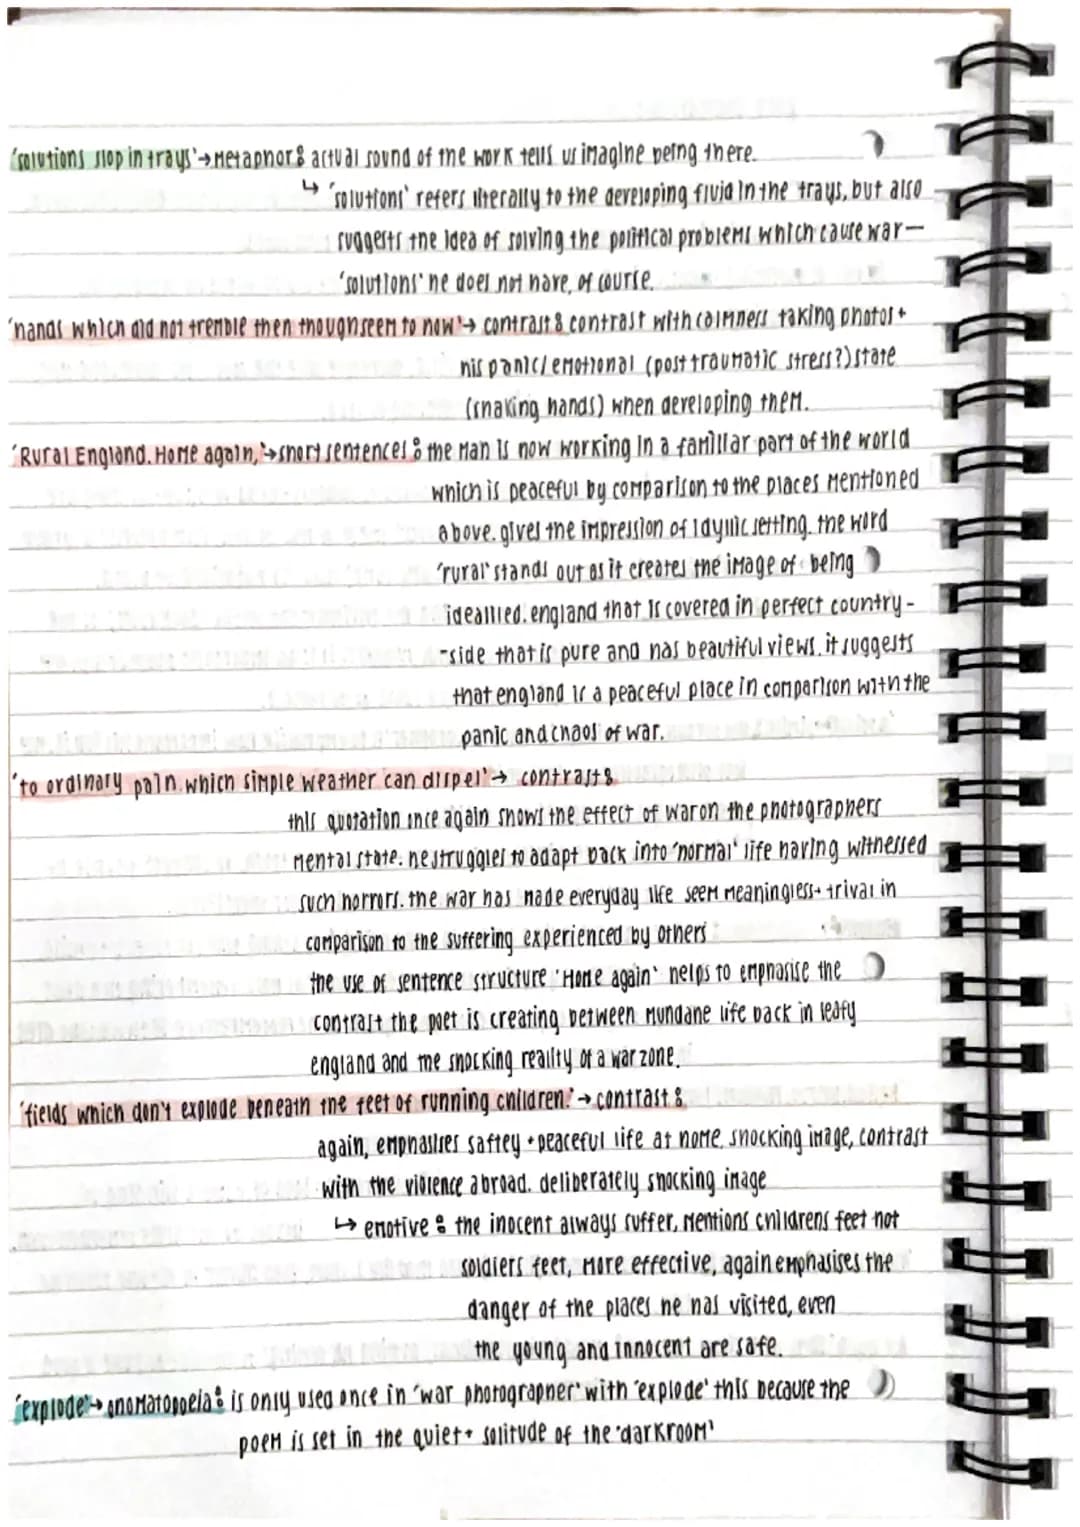 'solutions slop in trays' → Metaphor: actual sound of the work tells us imagine being there.
↳ 'solutions' refers literally to the developing fluid in the trays, but also
suggests the idea of solving the political problems which cause war—
'solutions' he does not have, of course.
'hands which did not tremble then though seem to now' → contrast: contrast with calmness taking photos +
his panic/emotional (post traumatic stress?) state
(shaking hands) when developing them.
'Rural England. Home again,' → short sentences: the man is now working in a familiar part of the world
which is peaceful by comparison to the places mentioned
above. gives the impression of idyllic setting. the word
'rural' stands out as it creates the image of being
idealised. england that is covered in perfect country-
-side that is pure and has beautiful views. it suggests
that england is a peaceful place in comparison with the
panic and chaos of war.
'to ordinary pain which simple weather can dispel' → contrast:
this quotation once again shows the effect of war on the photographers
mental state. he struggles to adapt back into 'normal' life having witnessed
such horrors. the war has made everyday life seem meaningless + trival in
comparison to the suffering experienced by others
the use of sentence structure 'Home again' helps to emphasise the
contrast the poet is creating between mundane life back in leafy
england and the shocking reality of a war zone.
'fields which don't explode beneath the feet of running children.' → contrast:
again, emphasises saftey + peaceful life at home. shocking image, contrast
with the violence abroad. deliberately shocking image
↳ emotive: the inocent always suffer. mentions childrens feet not
soldiers feet, more effective, again emphasises the
danger of the places he has visited, even
the young and innocent are safe.
'explode' → onomatopoeia: is only used once in 'war photographer' with 'explode' this because the
poem is set in the quiet + solitude of the 'darkroom'